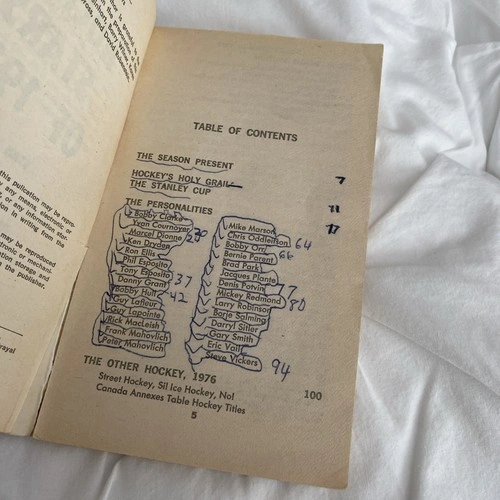 is provided to the
the preparation
Barry Wilner, Karen
Ross, and David Rubenstein
this publication may be repro-
by any means, electronic or
or any information stor-
in writing from the
may be reproduced
electronic or mechani-
storage and
the publisher.
TABLE OF CONTENTS
THE SEASON PRESENT
HOCKEY'S HOLY GRAIL 7
THE STANLEY CUP 11
THE PERSONALITIES 17
Bobby Clarke
Yvan Cournoyer
Marcel Dionne
Ken Dryden
Ron Ellis
Phil Esposito
Tony Esposito
Danny Grant 37
Bobby Hull 42
Guy Lafleur
Guy Lapointe
Rick MacLeish
Frank Mahovlich
Peter Mahovlich
Mike Marson
Chris Oddleifson 64
Bobby Orr 66
Bernie Parent
Brad Park
Jacques Plante
Denis Potvin 77
Mickey Redmond 80
Larry Robinson
Borje Salming
Darryl Sitler
Gary Smith
Eric Vail
Steve Vickers 94
THE OTHER HOCKEY, 1976 100
Street Hockey, Sil Ice Hockey, No!
Canada Annexes Table Hockey Titles
5